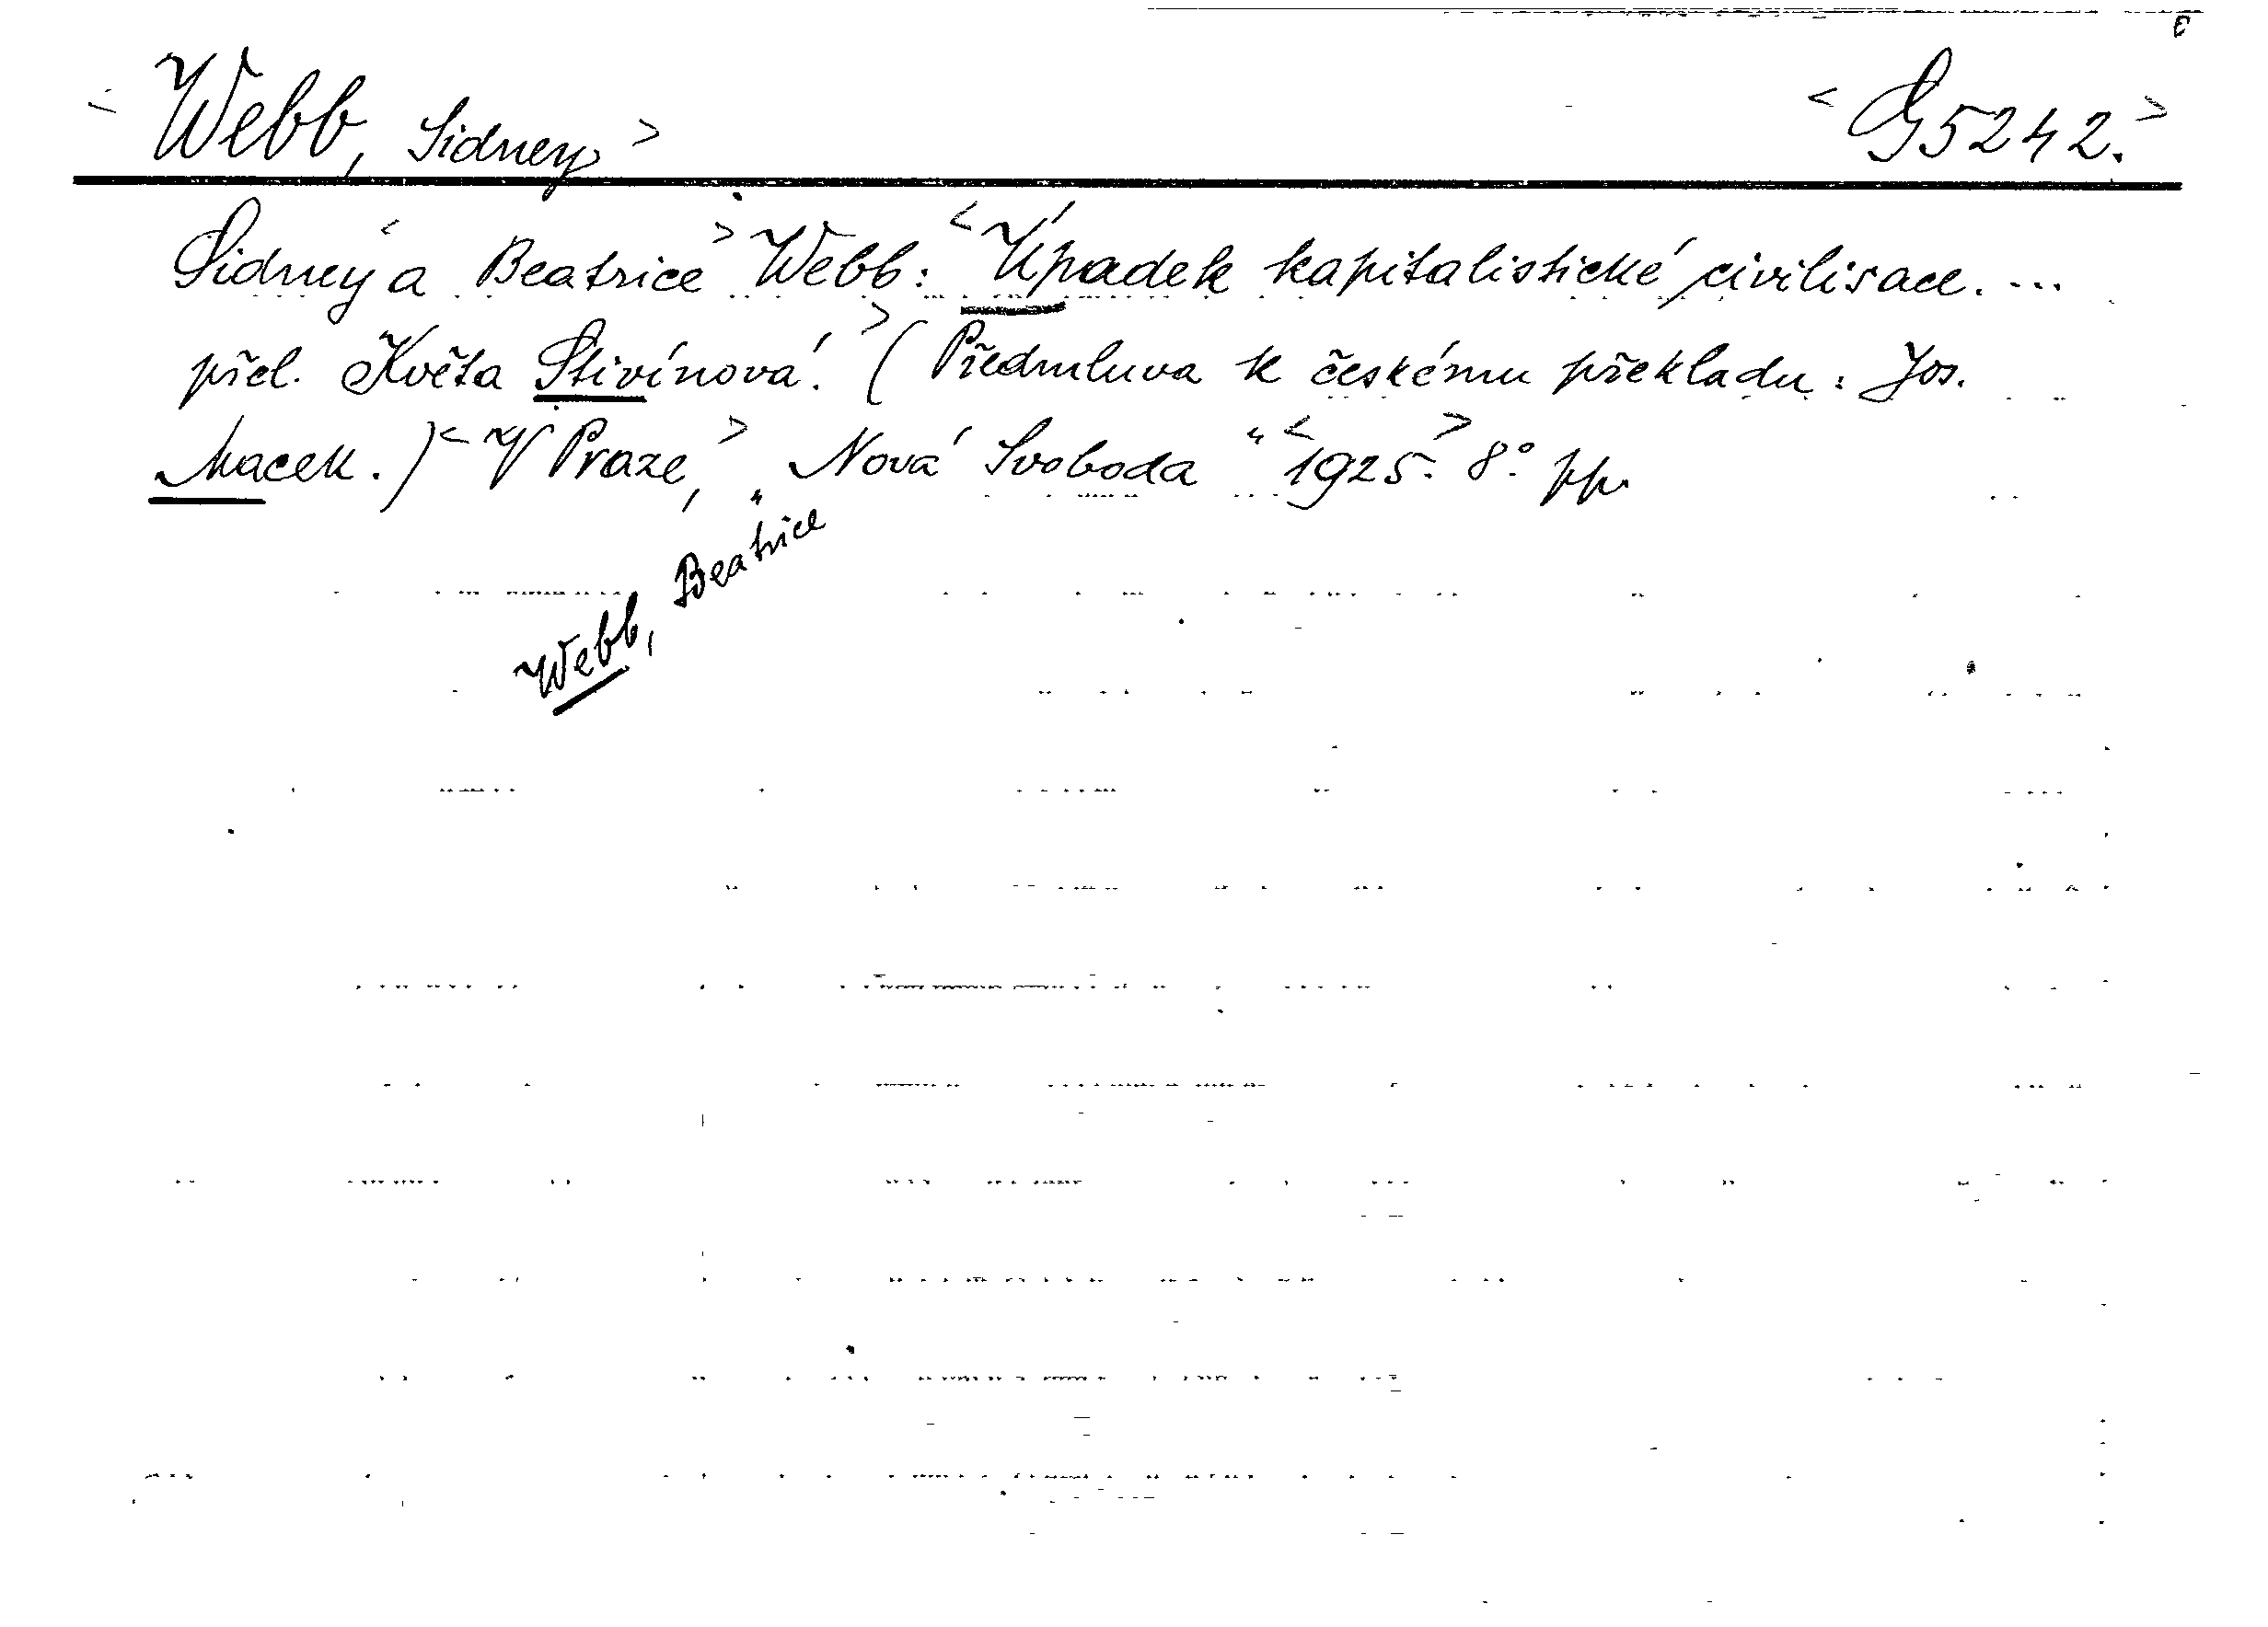 < Webb, Sidney > < G 5242. >
Sidney < a Beatrice > Webb: < Úpadek kapitalistické civilisace. ...
přel. Květa Stivínová. > ( Předmluva k českému překladu: Jos.
Macek. ) < V Praze, > „Nová Svoboda" < 1925. > 8° pp.
Webb, Beatrice